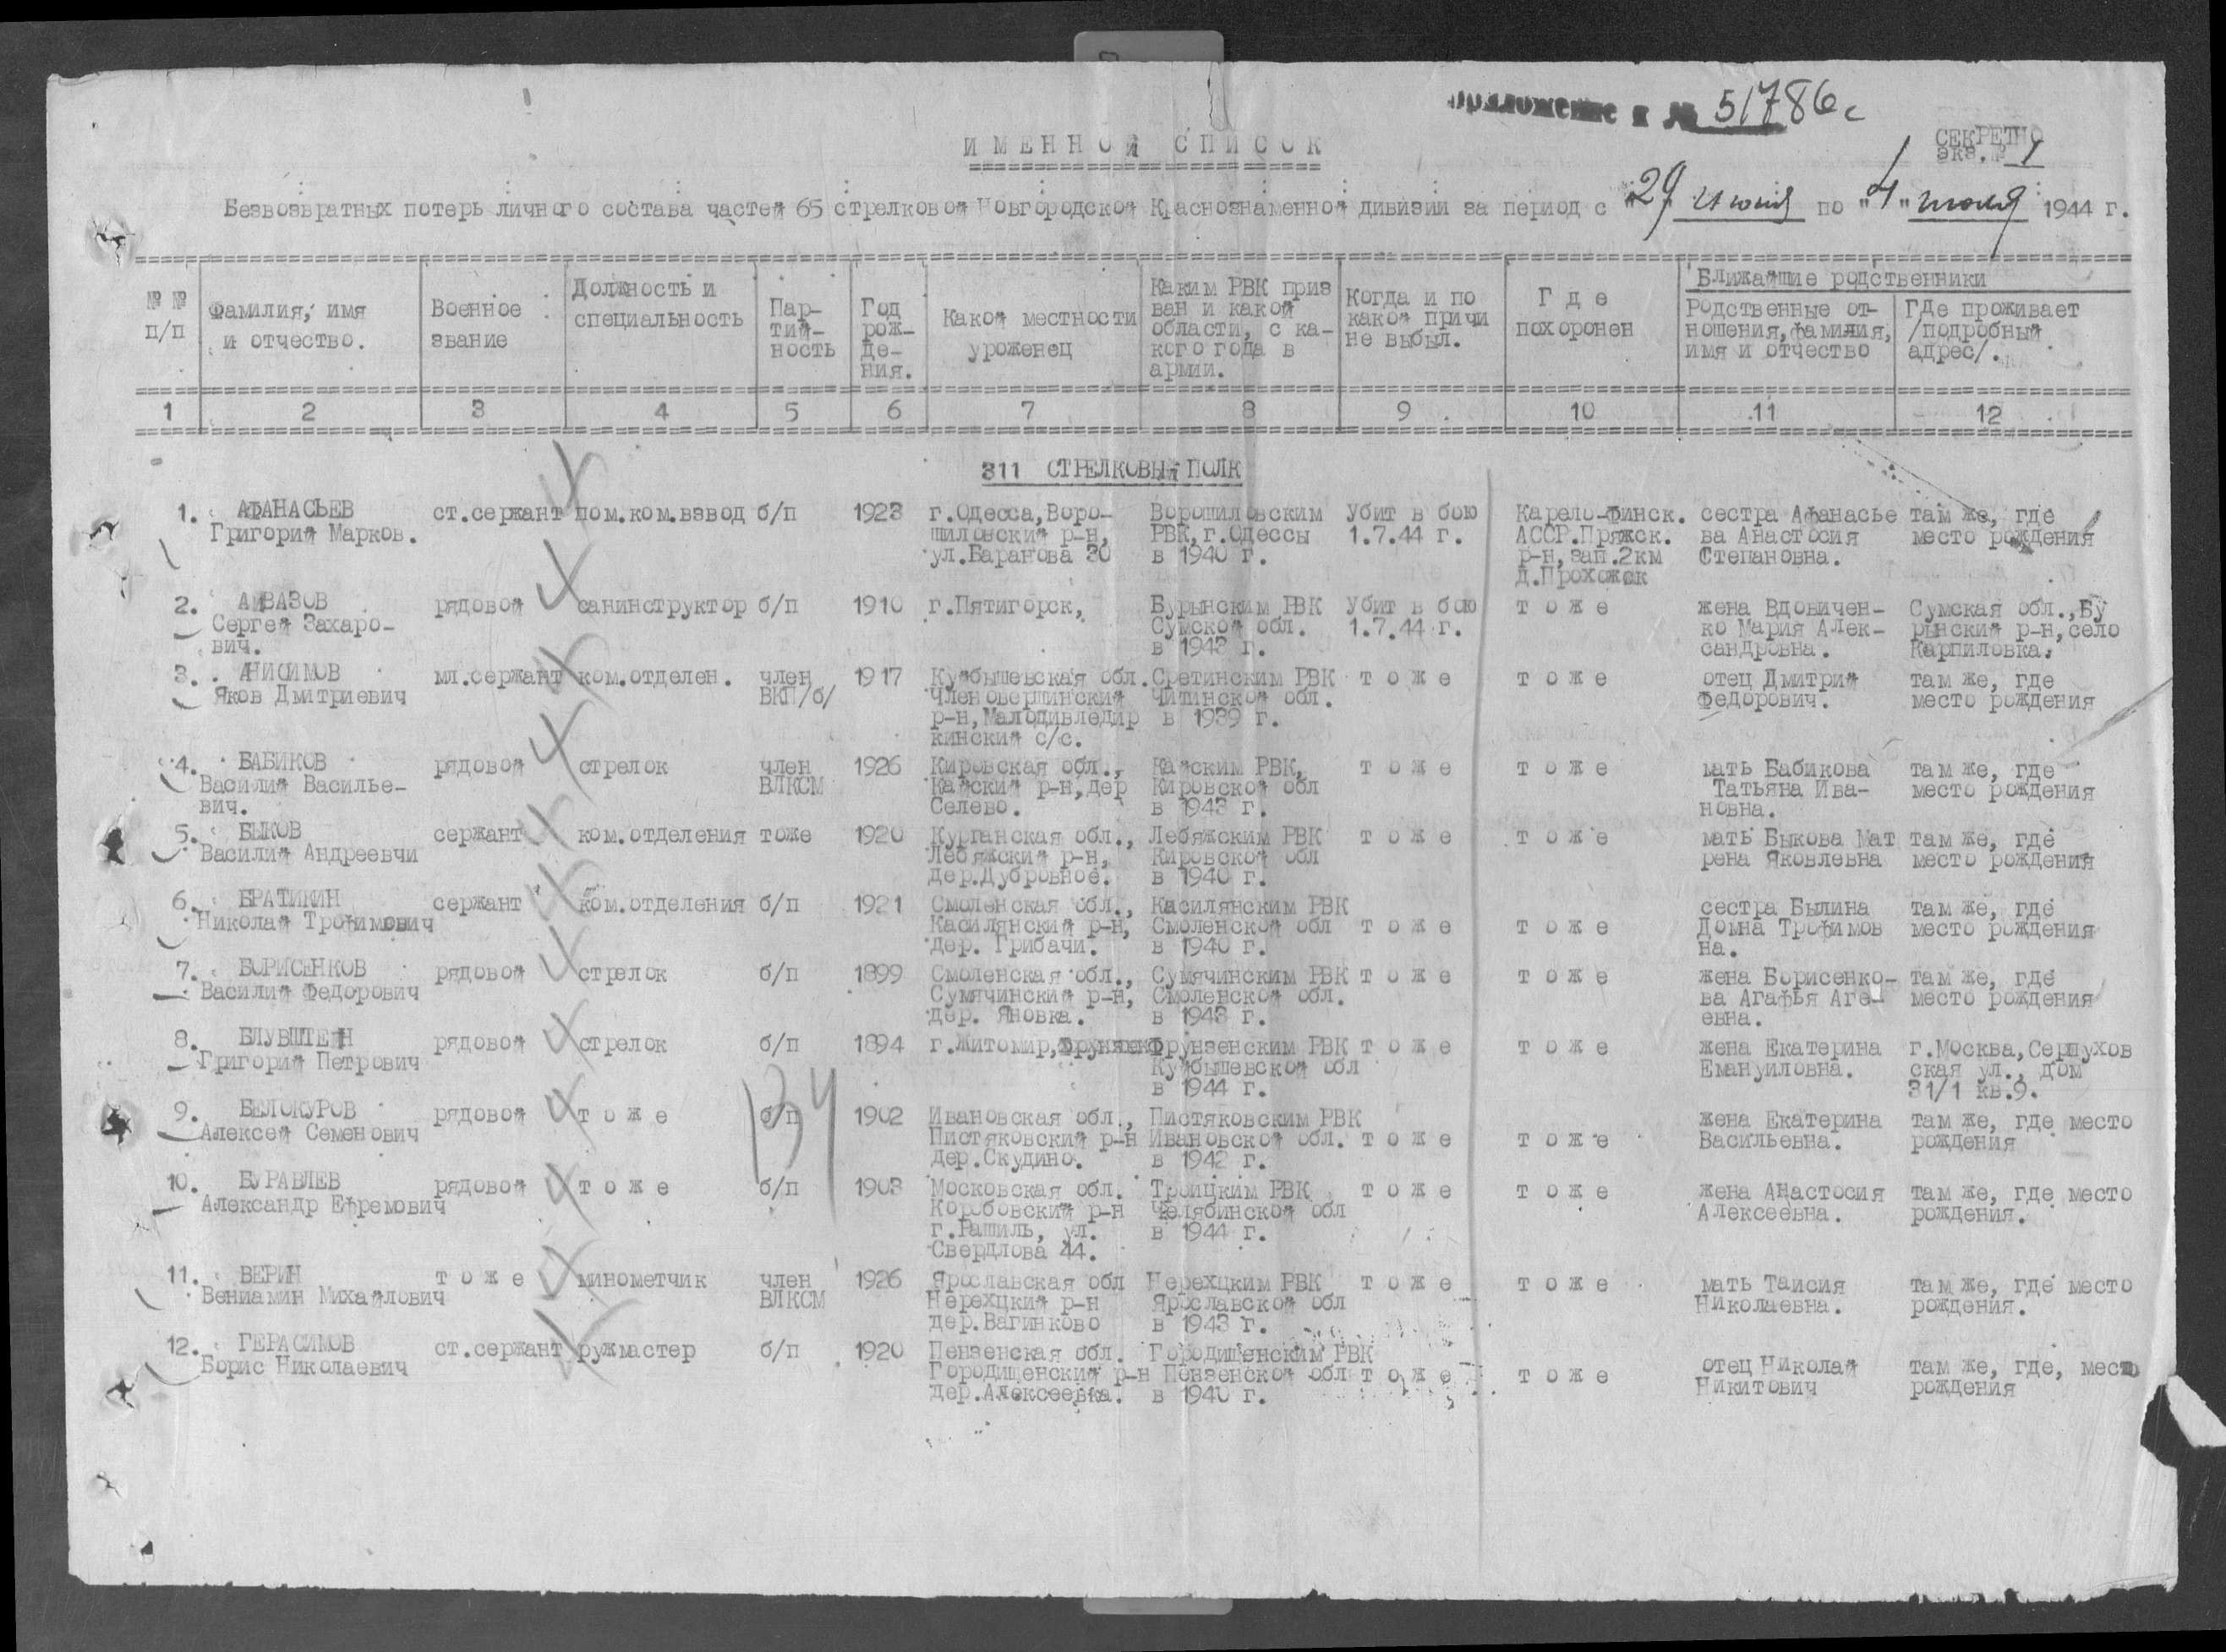 Приложение к № 51786с
ИМЕННОЙ СПИСОК
СЕКРЕТНО
экз.№ 1
Безвозвратных потерь личного состава частей 65 стрелковой Новгородской Краснознаменной дивизии за период с "29 июня по "4" июля 1944 г.
№ № п/п
Фамилия, имя и отчество.
Военное звание
Должность и специальность
Пар-
тий-
ность
Год
рож-
де-
ния.
Какой местности уроженец
Каким РВК приз
ван и какой
области, с ка-
кого года в
армии.
Когда и по
какой причи
не выбыл.
Где
похоронен
Ближайшие родственники
Родственные от-
ношения, фамилия,
имя и отчество
ГДе проживает
/подробный
адрес/.
1 2 3 4 5 6 7 8 9 10 11 12
311 СТРЕЛКОВЫЙ ПОЛК
1. АФАНАСЬЕВ
Григорий Марков.
ст.сержант
пом.ком.взвод
б/п
1923
г.Одесса,Воро-
шиловский р-н,
ул.Баранова 30
Ворошиловским
РВК,г.Одессы
в 1940 г.
Убит в бою
1.7.44 г.
Карело-Финск.
АССР.Пряжск.
р-н,зап.2км
д.Прохожек
сестра Афанасье
ва Анастосия
Степановна.
там же, где
место рождения
2. АЙВАЗОВ
Сергей Захаро-
вич.
рядовой
санинструктор
б/п
1910
г.Пятигорск,
Бурынским РВК
Сумской обл.
в 1943 г.
Убит в бою
1.7.44 г.
тоже
жена Вдовичен-
ко Мария Алек-
сандровна.
Сумская обл.,Бу
рынский р-н,село
Карпиловка.
3. АНИСИМОВ
Яков Дмитриевич
мл.сержант
ком.отделен.
член
ВКП/б/
1917
Куйбышевская обл.
Членовершинский
р-н,Малодивледир
кинский с/с.
Сретинским РВК
Читинской обл.
в 1939 г.
тоже
тоже
отец Дмитрий
Федорович.
там же, где
место рождения
4. БАБИКОВ
Василий Василье-
вич.
рядовой
стрелок
член
ВЛКСМ
1926
Кировская обл.,
Кайский р-н,дер
Селево.
Кайским РВК,
Кировской обл
в 1943 г.
тоже
тоже
мать Бабикова
Татьяна Ива-
новна.
там же, где
место рождения
5. БЫКОВ
Василий Андреевчи
сержант
ком.отделения
тоже
1920
Курганская обл.,
Лебяжский р-н,
дер.Дубровное.
Лебяжским РВК
Кировской обл
в 1940 г.
тоже
тоже
мать Быкова Мат
рена Яковлевна
там же, где
место рождения
6. БРАТИКИН
Николай Трофимович
сержант
ком.отделения
б/п
1921
Смоленская обл.,
Касилянский р-н,
дер. Грибачи.
Касилянским РВК
Смоленской обл
в 1940 г.
тоже
тоже
сестра Былина
Домна Трофимов
на.
там же, где
место рождения
7. БОРИСЕНКОВ
Василий Федорович
рядовой
стрелок
б/п
1899
Смоленская обл.,
Сумячинский р-н,
дер. Яновка.
Сумячинским РВК
Смоленской обл.
в 1943 г.
тоже
тоже
жена Борисенко-
ва Агафья Аге
евна.
там же, где
место рождения
8. БЛУВШТЕЙН
Григорий Петрович
рядовой
стрелок
б/п
1894
г.Житомир,
Фрунзенским РВК
Куйбышевской обл
в 1944 г.
тоже
тоже
жена Екатерина
Емануиловна.
г.Москва,Серпухов
ская ул., дом
31/1 кв.9.
9. БЕЛОКУРОВ
Алексей Семенович
рядовой
тоже
б/п
134
1902
Ивановская обл.,
Пистяковский р-н
дер.Скудино.
Пистяковским РВК
Ивановской обл.
в 1942 г.
тоже
тоже
жена Екатерина
Васильевна.
там же, где место
рождения
10. БУРАВЛЕВ
Александр Ефремович
рядовой
тоже
б/п
1903
Московская обл.
Коробовский р-н
г.Рашиль, ул.
Свердлова 44.
Троицким РВК
Челябинской обл
в 1944 г.
тоже
тоже
жена Анастосия
Алексеевна.
там же, где место
рождения.
11. ВЕРИН
Вениамин Михайлович
тоже
минометчик
член
ВЛКСМ
1926
Ярославская обл
Нерехцкий р-н
дер.Вагинково
Нерехцким РВК
Ярославской обл
в 1943 г.
тоже
тоже
мать Таисия
Николаевна.
там же, где место
рождения.
12. ГЕРАСИМОВ
Борис Николаевич
ст.сержант
ружмастер
б/п
1920
Пензенская обл.
Городищенский р-н
дер.Алексеевка.
Городищенским РВК
Пензенской обл
в 1940 г.
тоже
тоже
отец Николай
Никитович
там же, где, место
рождения